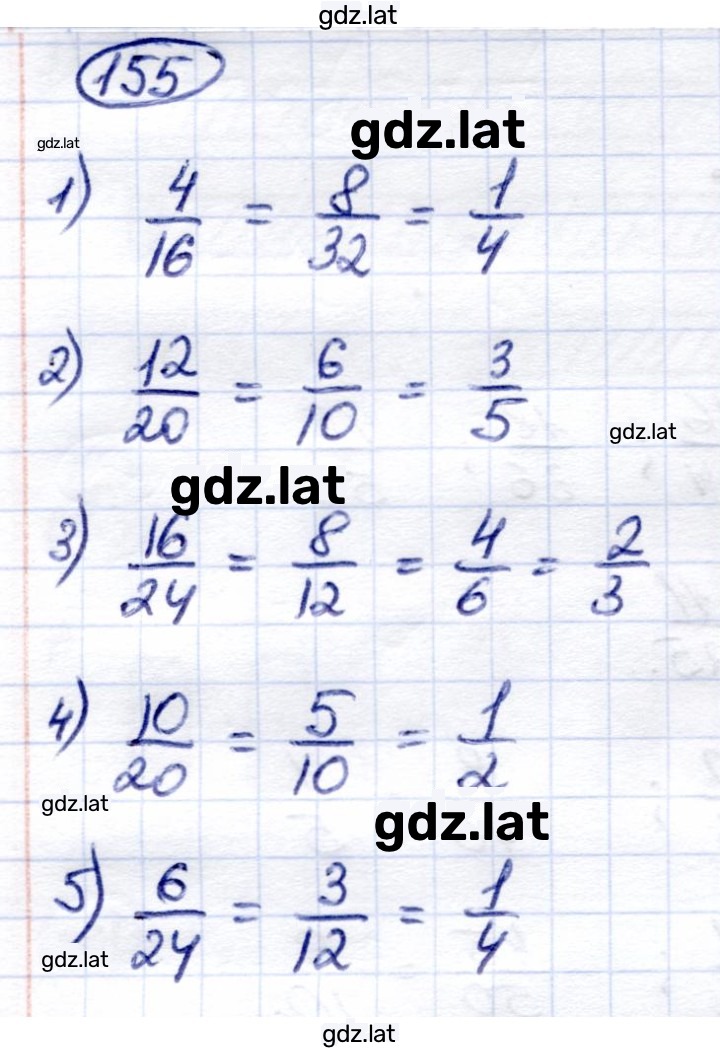 gdz.lat
155
gdz.lat
gdz.lat
1) 4/16 = 8/32 = 1/4
2) 12/20 = 6/10 = 3/5
gdz.lat
gdz.lat
3) 16/24 = 8/12 = 4/6 = 2/3
4) 10/20 = 5/10 = 1/2
gdz.lat
gdz.lat
5) 6/24 = 3/12 = 1/4
gdz.lat
gdz.lat